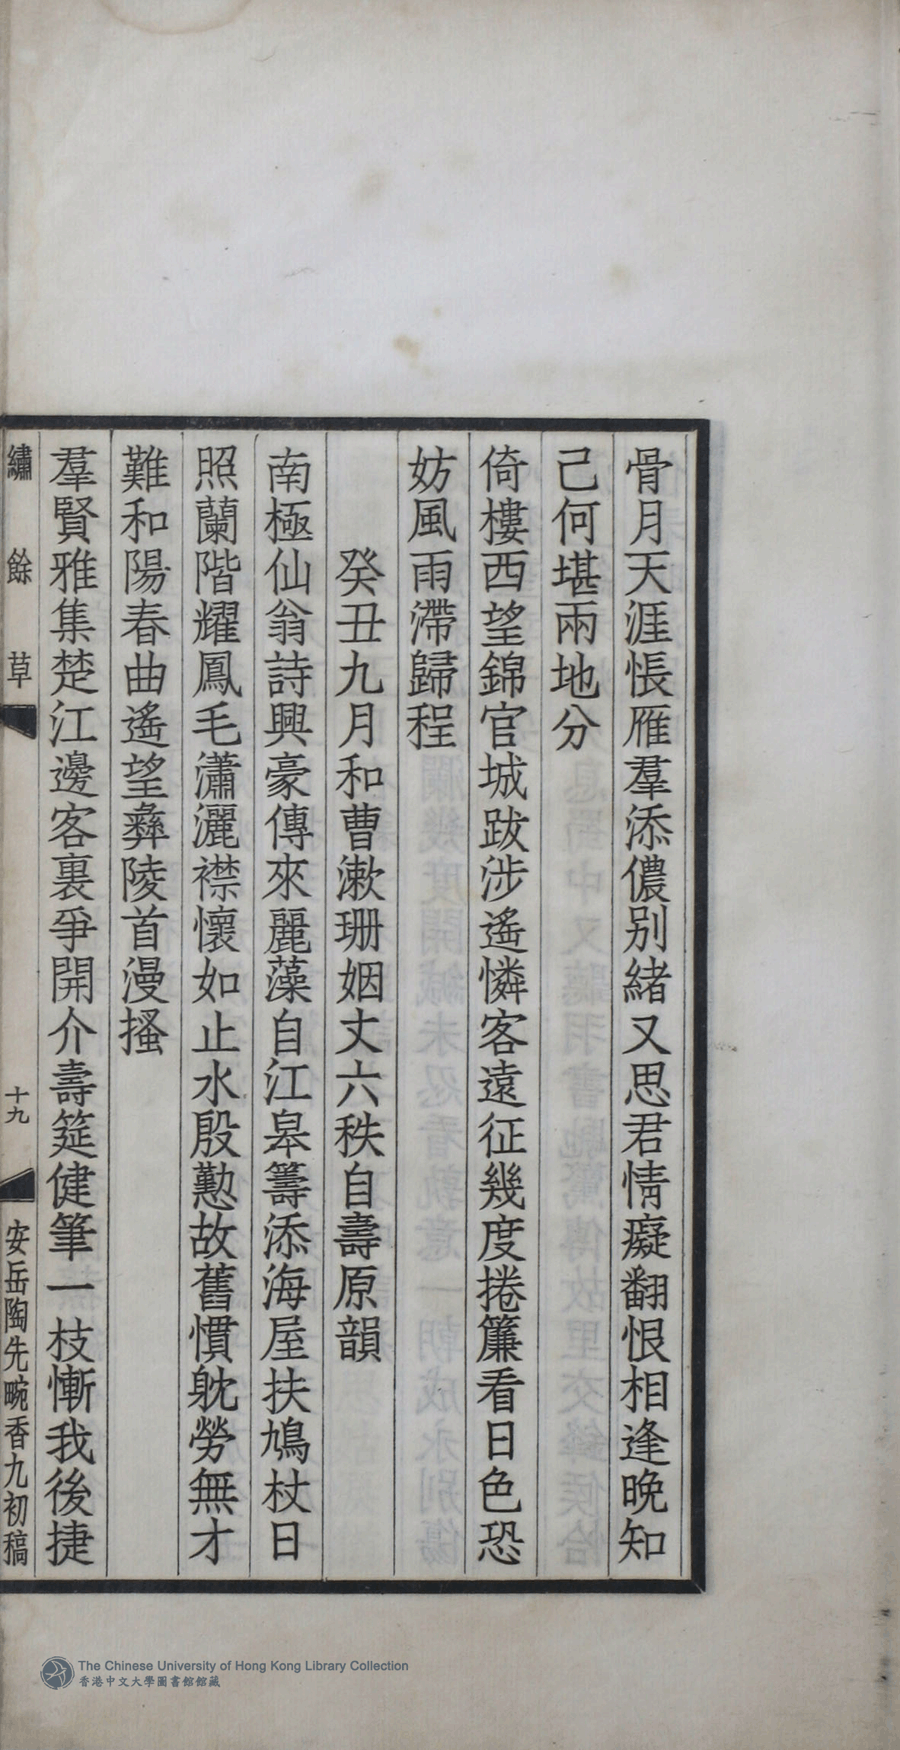 骨月天涯悵雁羣添儂別緒又思君情癡翻恨相逢晚知
己何堪兩地分
倚樓西望錦官城跋涉遙憐客遠征幾度捲簾看日色恐
妨風雨滯歸程
癸丑九月和曹漱珊姻丈六秩自壽原韻
南極仙翁詩興豪傳來麗藻自江皋籌添海屋扶鳩杖日
照蘭階耀鳳毛瀟灑襟懷如止水殷懃故舊慣躭勞無才
難和陽春曲遙望彝陵首漫搔
羣賢雅集楚江邊客裏爭開介壽筵健筆一枝慚我後捷
繡餘草
十九
安岳陶先畹香九初稿
The Chinese University of Hong Kong Library Collection
香港中文大學圖書館館藏